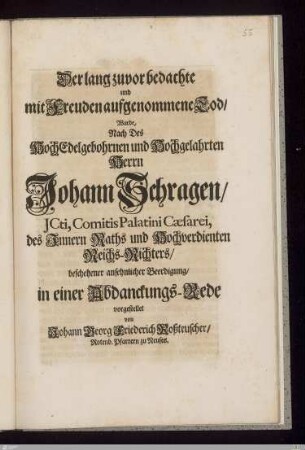 55
Der lang zuvor bedachte
und
mit Freuden aufgenommene Tod/
Wurde,
Nach Des
HochEdelgebohrnen und Hochgelahrten
Herrn
Johann Schragen/
JCti, Comitis Palatini Cæsarei,
des Innern Raths und Hochverdienten
Reichs-Richters/
beschehener ansehnlicher Beerdigung/
in einer Abdanckungs-Rede
vorgestellet
von
Johann Georg Friederich Roßteuscher/
Rotenb. Pfarrern zu Neusitz.